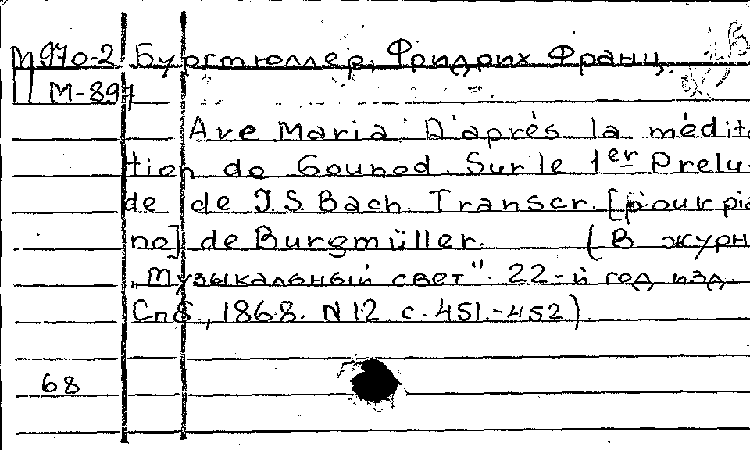 М970-2 Бургмюллер, Фридрих Франц.
М-897
Ave Maria D'après la médita
tion de Gounod. Sur le 1er Prelu-
de de J.S. Bach. Transcr. [pour pia
no] de Burgmüller. (В журн
„Музыкальный свет". 22-й год изд.
Спб, 1868. N 12 с. 451.-452).
68